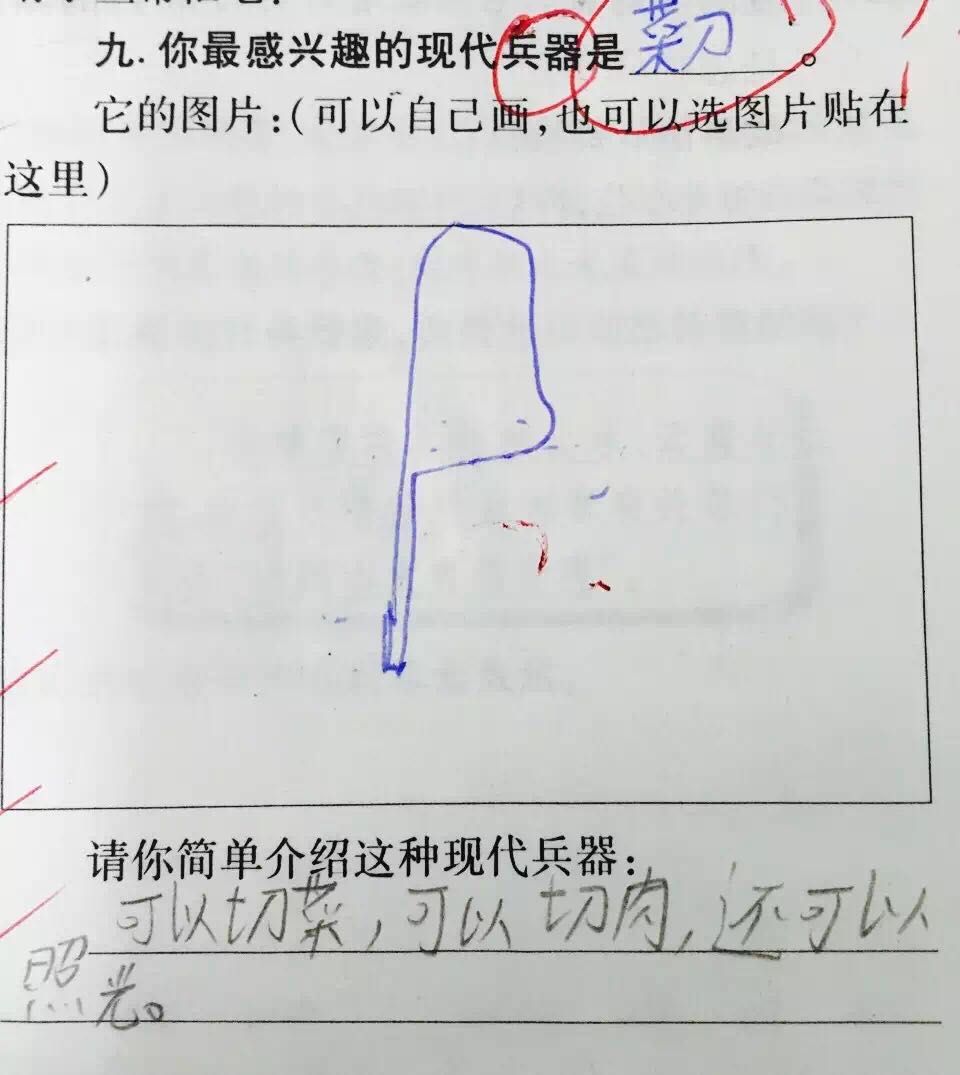 九. 你最感兴趣的现代兵器是菜刀。
它的图片:(可以自己画,也可以选图片贴在
这里)
请你简单介绍这种现代兵器:
可以切菜,可以切肉,还可以
照光。